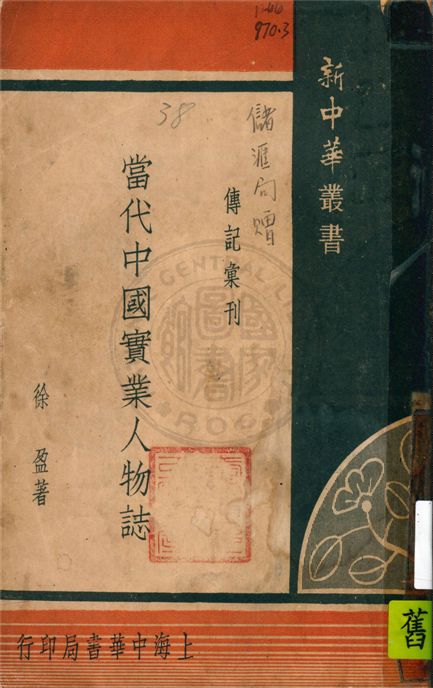 新中華叢書
傳記彙刊
儲滙局贈
當代中國實業人物誌
徐盈著
上海中華書局印行
38
970.3
舊